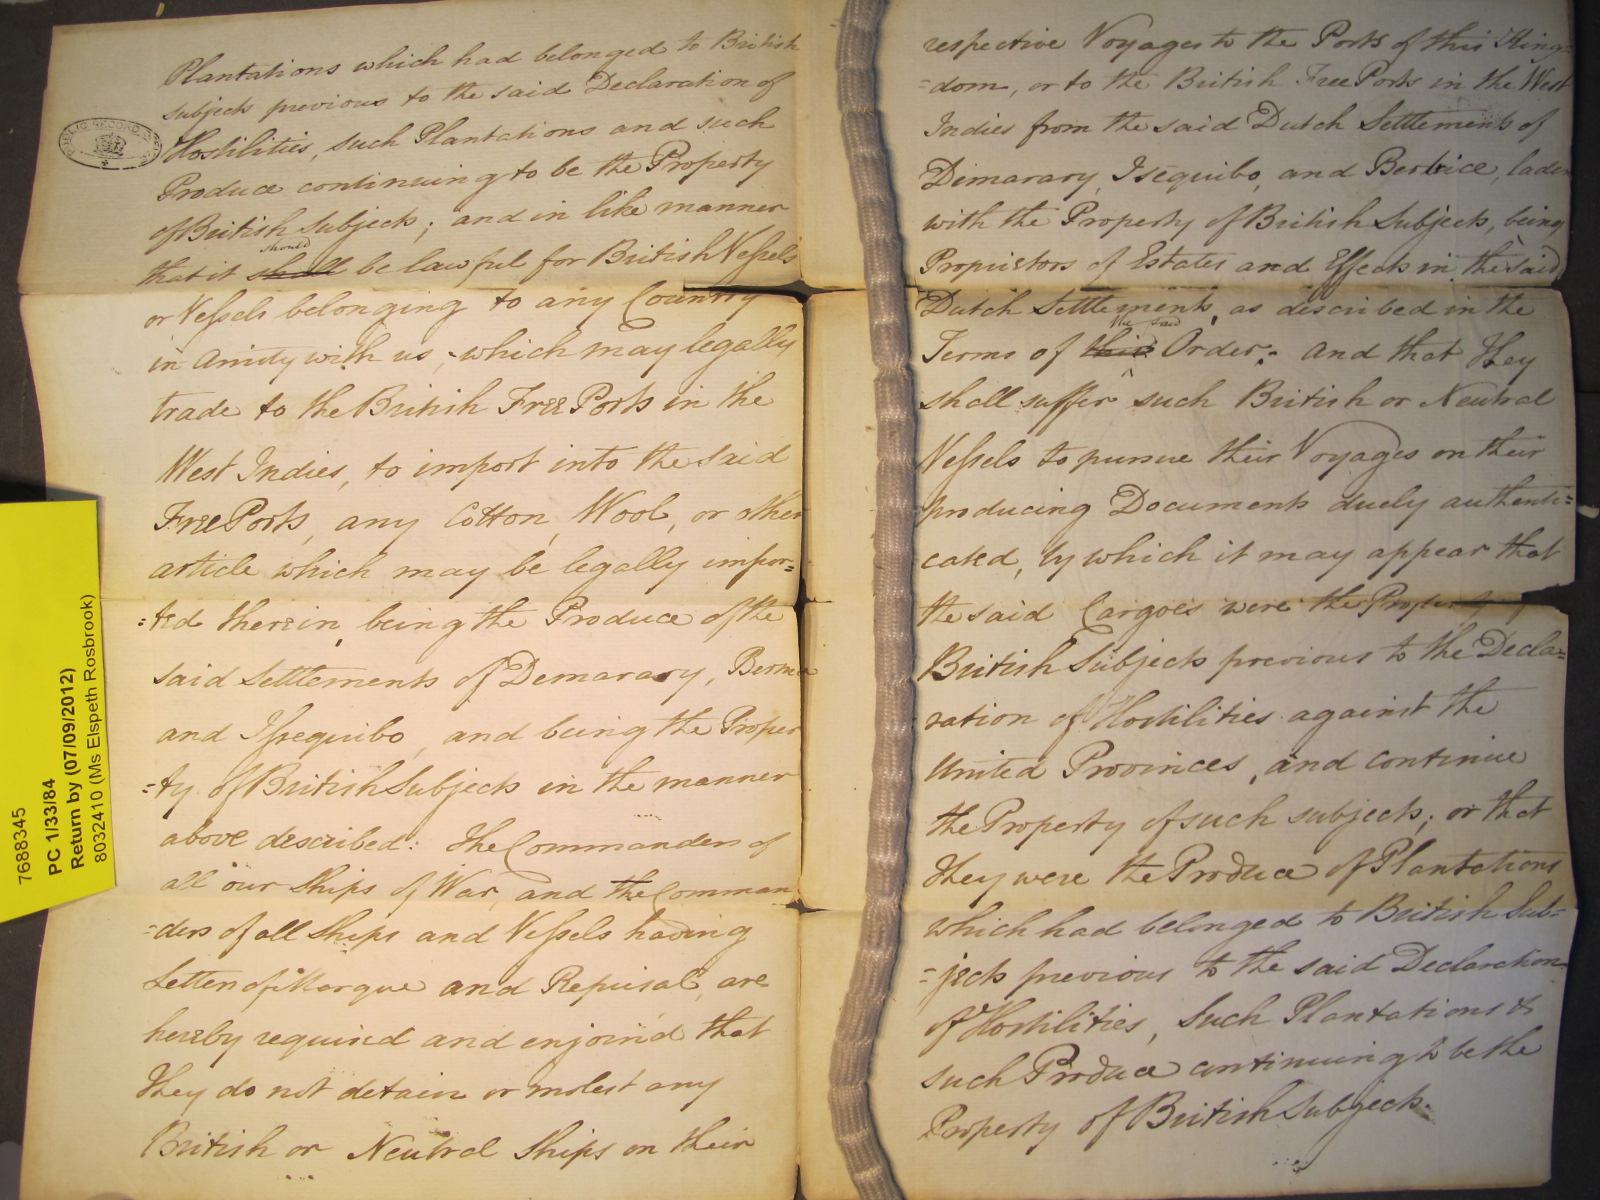 Plantations which had belonged to British
subjects previous to the said Declaration of
Hostilities, such Plantations and such
Produce continuing to be the Property
of British Subjects; and in like manner
should
that it shall be lawful for British Vessels
or Vessels belonging to any Country
in Amity with us, which may legally
trade to the British Free Ports in the
West Indies, to import into the said
Free Ports, any Cotton, Wool, or other
article which may be legally impor=
=ted therein, being the Produce of the
said Settlements of Demarary,
and Issequibo, and being the Proper
=ty of British Subjects in the manner
above described: The Commanders of
all our Ships of War, and the Comman
=ders of all Ships and Vessels having
Letters of Marque and Reprisal, are
hereby required and enjoin'd that
They do not detain or molest any
British or Neutral Ships on their
respective Voyages to the Ports of this King=
=dom, or to the British Free Ports in the West
Indies from the said Dutch Settlements of
Dimarary, Isequibo, and Berbice, laden
with the Property of British Subjects, being
Proprietors of Estates and Effects in the said
Dutch Settlements, as described in the
the said
Terms of this Order: And that They
shall suffer such British or Neutral
Vessels to pursue their Voyages on their
producing Documents duely authenti=
cated, by which it may appear that
the said Cargoes were the Property of
British Subjects previous to the Decla=
ration of Hostilities against the
United Provinces, and continue
the Property of such subjects; or that
They were the Produce of Plantations
which had belonged to British Sub=
=jects previous to the said Declaration
of Hostilities, Such Plantations &
such Produce continuing to be the
Property of British Subjects.
PUBLIC RECORD OFFICE
7688345
PC 1/33/84
Return by (07/09/2012)
8032410 (Ms Elspeth Rosbrook)